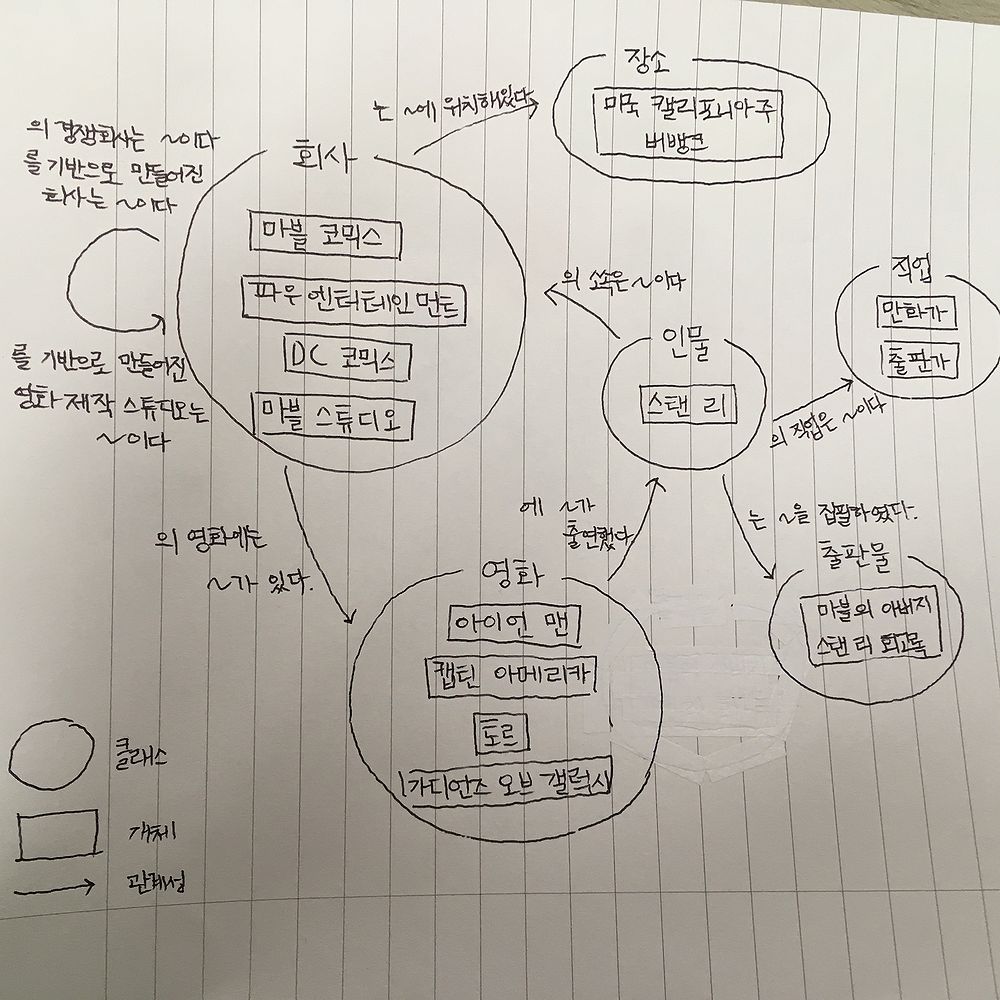 장소
미국 캘리포니아주
버뱅크
는 ~에 위치해있다
의 경쟁회사는 ~이다
를 기반으로 만들어진
회사는 ~이다
회사
마블 코믹스
파우 엔터테인먼트
DC 코믹스
마블 스튜디오
를 기반으로 만들어진
영화 제작 스튜디오는
~이다
의 소속은 ~이다
인물
스탠 리
직업
만화가
출판가
의 직업은 ~이다
의 영화에는
~가 있다.
에 ~가
출연했다
는 ~을 집필하였다.
출판물
마블의 아버지
스탠 리 회고록
영화
아이언 맨
캡틴 아메리카
토르
가디언즈 오브 갤럭시
클래스
개체
관계성